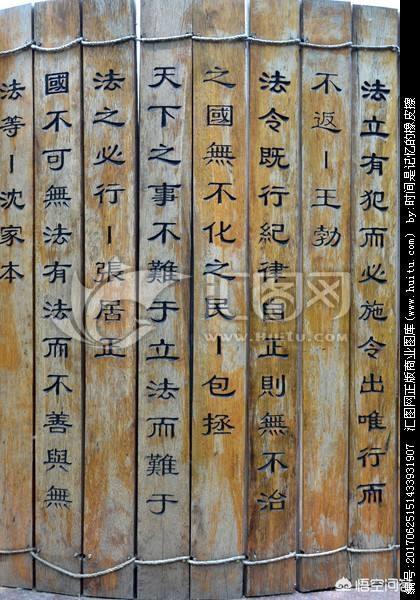 法立有犯而必施令出唯行而
不返－王勃
法令既行紀律自正則無不治
之國無不化之民－包拯
天下之事不難于立法而難于
法之必行－張居正
國不可無法有法而不善與無
法等－沈家本
汇图网
www.huitu.com
悟空问答
编号:20170625151433931907 汇图网正版商业图库(www.huitu.com) by:时间是记忆的橡皮擦